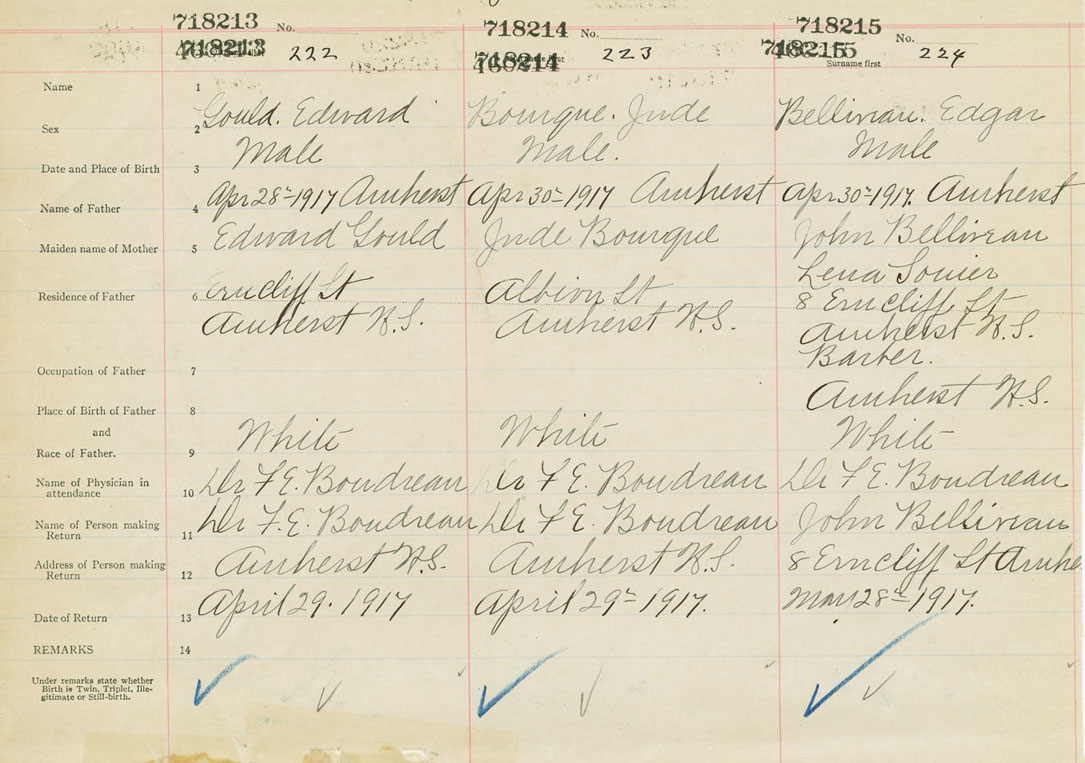 718213 No. 718214 No. 718215 No.
718213 222 718214 223 718215 224
Surname first
Name 1 Gould. Edward Bourque. Jude Belliveau. Edgar
Sex 2 Male Male. Male
Date and Place of Birth 3 Apr 28th 1917 Amherst Apr 30th 1917 Amherst Apr 30th 1917. Amherst
Name of Father 4 Edward Gould Jude Bourque John Belliveau
Maiden name of Mother 5 Lena
Residence of Father 6 Erncliff St Albion St 8 Erncliff St
Amherst N.S. Amherst N.S. Amherst N.S.
Occupation of Father 7 Barber.
Place of Birth of Father 8 Amherst N.S.
and
Race of Father. 9 White White White
Name of Physician in
attendance 10 Dr F E. Boudreau Dr F E. Boudreau Dr F E. Boudreau
Name of Person making
Return 11 Dr F. E. Boudreau Dr F E. Boudreau John Belliveau
Address of Person making
Return 12 Amherst N.S. Amherst N.S. 8 Erncliff St Amhe
Date of Return 13 April 29. 1917 April 29th 1917. May 28th 1917.
REMARKS 14
Under remarks state whether
Birth is Twin, Triplet, Ille-
gitimate or Still-birth.